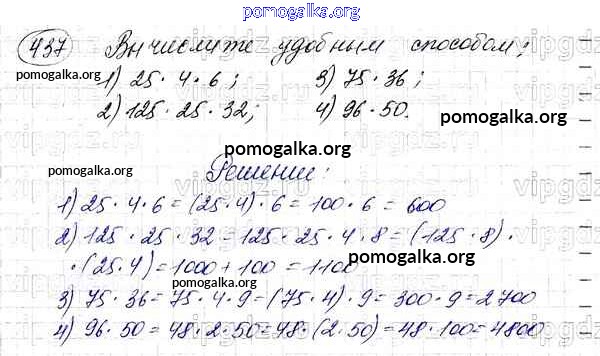 pomogalka.org
437 Вычислите удобным способом:
pomogalka.org
1) 25 · 4 · 6; 3) 75 · 36;
pomogalka.org
2) 125 · 25 · 32; 4) 96 · 50.
pomogalka.org
pomogalka.org
Решение:
pomogalka.org
1) 25 · 4 · 6 = (25 · 4) · 6 = 100 · 6 = 600
pomogalka.org
2) 125 · 25 · 32 = 125 · 25 · 4 · 8 = (125 · 8) ·
· (25 · 4) = 1000 + 100 = 1100
pomogalka.org
pomogalka.org
3) 75 · 36 = 75 · 4 · 9 = (75 · 4) · 9 = 300 · 9 = 2700
4) 96 · 50 = 48 · 2 · 50 = 48 · (2 · 50) = 48 · 100 = 4800
pomogalka.org